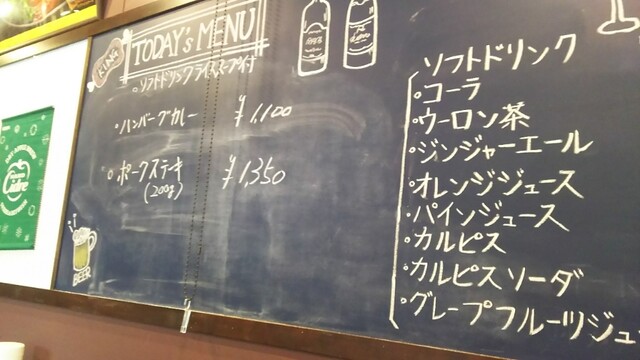 KING
TODAY's MENU
・ソフトドリンク ライス スープ付
・ハンバーグカレー ¥1,100
・ポークステキ ¥1,350
(200g)
BEER
Cidre
ソフトドリンク
・コーラ
・ウーロン茶
・ジンジャーエール
・オレンジジュース
・パインジュース
・カルピス
・カルピスソーダ
・グレープフルーツジュ